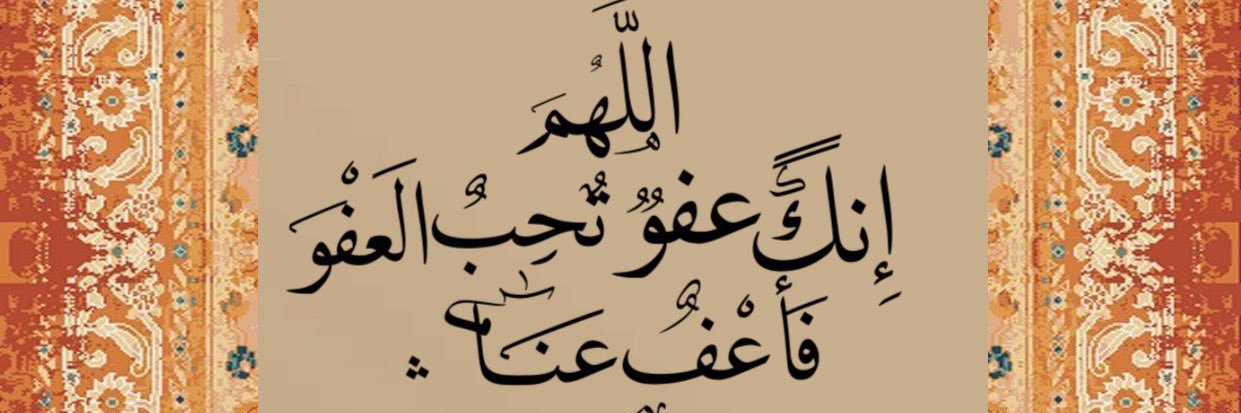 اللَّهُمَ
إِنكَّ عفوٌ تُحِبُ العَفْوَ
فَأَعْفُ عنَا